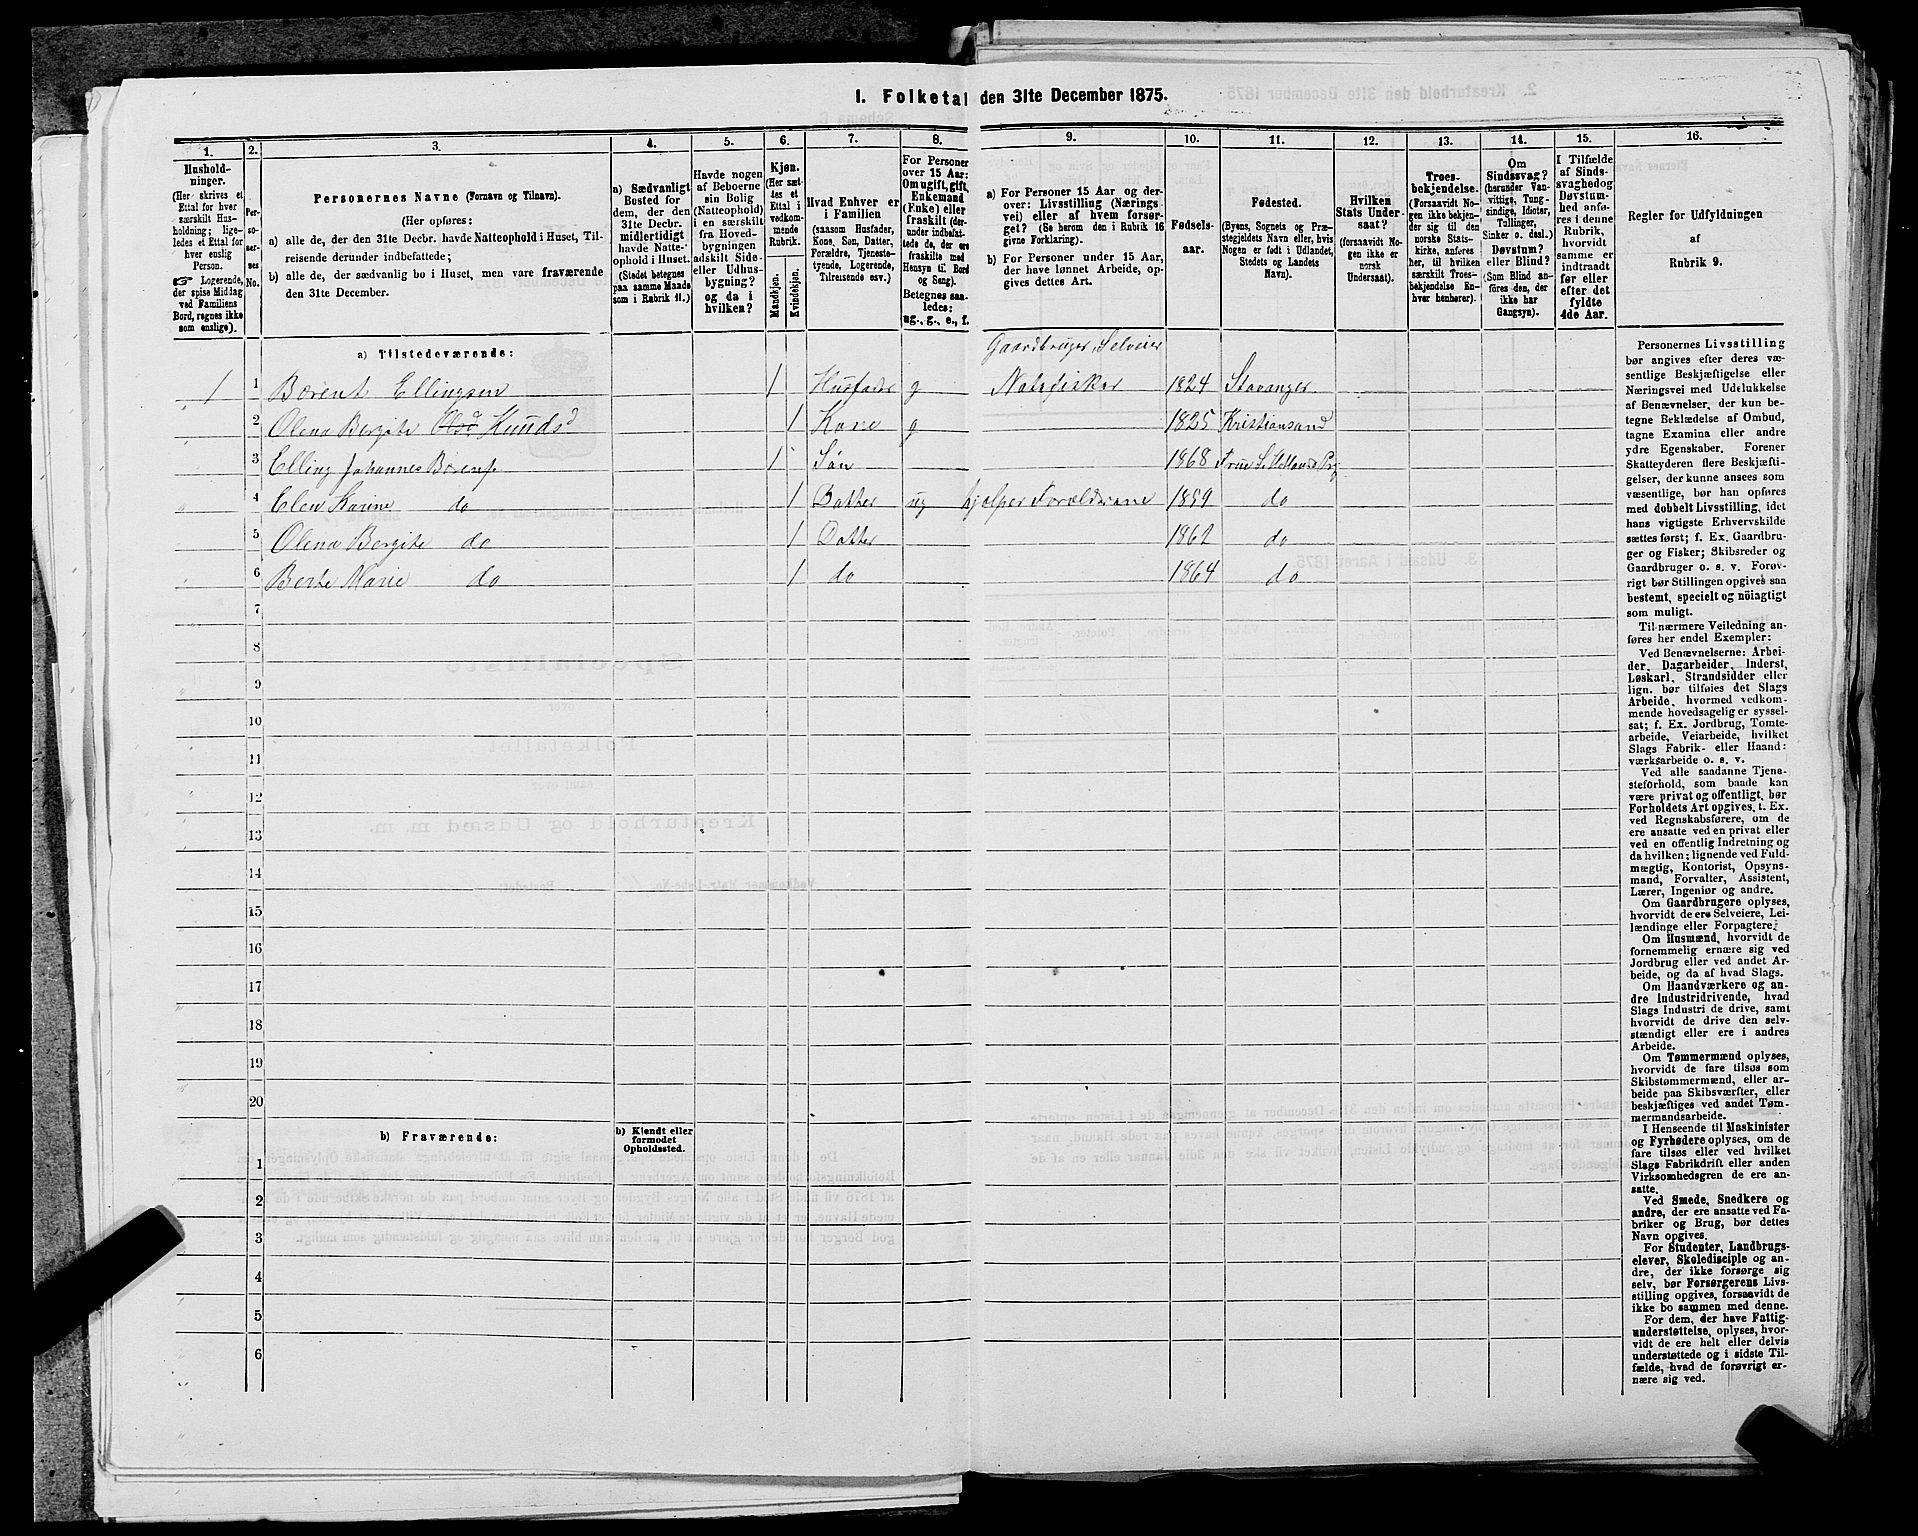 1. Folketal den 31te December 1875.
1.
Husholdninger.
(Her skrives et
Ettal for hver
særskilt Hus-
holdning; lige-
ledes et Ettal for
hver enslig
Person.
Logerende,
der spise Middag
ved Familiens
Bord, regnes ikke
som enslige).
2.
Per-
so-
ner-
nes
No.
3.
Personernes Navne (Fornavn og Tilnavn).
(Her opføres:
a) alle de, der den 31te Decbr. havde Natteophold i Huset, Til-
reisende derunder indbefattede;
b) alle de, der sædvanlig bo i Huset, men vare fraværende
den 31te December.
4.
a) Sædvanligt
Bosted for
dem, der den
31te Decbr.
midlertidigt
havde Natte-
ophold i Huset.
(Stedet betegnes
paa samme Maade
som i Rubrik 11.)
5.
Havde nogen
af Beboerne
sin Bolig
(Natteophold)
i en særskilt
fra Hoved-
bygningen
adskilt Side-
eller Udhus-
bygning?
og da i
hvilken?
6.
Kjøn.
(Her sæt-
tes et
Ettal i
vedkom-
mende
Rubrik.
Mandkjøn.
Kvindekjøn.
7.
Hvad Enhver er
i Familien
(saasom Husfader,
Kone, Søn, Datter,
Forældre, Tjeneste-
tyende, Logerende,
Tilreisende osv.)
8.
For Personer
over 15 Aar:
Om ugift, gift,
Enkemand
(Enke) eller
fraskilt (der-
under indbefat-
tede de, der ere
fraskilte med
Hensyn til Bord
og Seng).
Betegnes saa-
ledes:
ug., g., e., f.
9.
a) For Personer 15 Aar og der-
over: Livsstilling (Nærings-
vei) eller af hvem forsør-
get? (Se herom den i Rubrik 16
givne Forklaring).
b) For Personer under 15 Aar,
der have lønnet Arbeide, op-
gives dettes Art.
10.
Fødsels-
aar.
11.
Fødested.
(Byens, Sognets og Præ-
stegjeldets Navn eller, hvis
Nogen er født i Udlandet,
Stedets og Landets
Navn).
12.
Hvilken
Stats Under-
saat?
(forsaavidt No-
gen ikke er
norsk
Undersaat).
13.
Troes-
bekjendelse.
(Forsaavidt No-
gen ikke bekjen-
der sig til den
norske Stats-
kirke, anføres
her, til hvilken
særskilt Troes-
bekjendelse En-
hver henhører).
14.
Om
Sindssvag?
(herunder Van-
vittige, Tung-
sindige, Idioter,
Tullinger,
Sinker o. desl.)
Døvstum?
eller Blind?
(Som Blind an-
føres den, der
ikke har
Gangsyn).
15.
I Tilfælde
af Sinds-
svaghed og
Døvstum-
hed anfø-
res i denne
Rubrik,
hvorvidt
samme er
indtraadt
før eller
efter det
fyldte
4de Aar.
16.
Regler for Udfyldningen
af
Rubrik 9.
a) Tilstedeværende:
Gaardbruger, Selveier
1 1 Børent Ellingsen 1 Husfader g Notefisker 1824 Stavanger
2 Olena Bergite Olsd Knudsd 1 Kone g 1825 Kristiansand
3 Elling Johannes 1 Søn 1868
4 Elen Karine do 1 Datter ug hjælper Forældrene 1859 do
5 Olena Bergite do 1 Datter 1862 do
6 Berte Marie do 1 do 1864 do
7
8
9
10
11
12
13
14
15
16
17
18
19
20
b) Fraværende:
b) Kjendt eller
formodet
Opholdssted.
1
2
3
4
5
6
Personernes Livsstilling
bør angives efter deres væ-
sentlige Beskjæftigelse eller
Næringsvei med Udelukkelse
af Benævnelser, der kun be-
tegne Beklædelse af Ombud,
tagne Examina eller andre
ydre Egenskaber. Forener
Skatteyderen flere Beskjæfti-
gelser, der kunne ansees som
væsentlige, bør han opføres
med dobbelt Livsstilling, idet
hans vigtigste Erhvervskilde
sættes først; f. Ex. Gaardbru-
ger og Fisker; Skibsreder og
Gaardbruger o. s. v. Forøv-
rigt bør Stillingen opgives saa
bestemt, specielt og nøiagtigt
som muligt.
Til nærmere Veiledning an-
føres her endel Exempler:
Ved Benævnelserne: Arbei-
der, Dagarbeider, Inderst,
Løskarl, Strandsidder eller
lign. bør tilføies det Slags
Arbeide, hvormed vedkom-
mende hovedsagelig er syssel-
sat; f. Ex. Jordbrug, Tomte-
arbeide, Veiarbeide, hvilket
Slags Fabrik- eller Haand-
værksarbeide o. s. v.
Ved alle saadanne Tjene-
steforhold, som baade kan
være privat og offentligt, bør
Forholdets Art opgives, t. Ex.
ved Regnskabsførere, om de
ere ansatte ved en privat eller
ved en offentlig Indretning og
da hvilken; lignende ved Fuld-
mægtig, Kontorist, Opsyns-
mand, Forvalter, Assistent,
Lærer, Ingeniør og andre.
Om Gaardbrugere oplyses,
hvorvidt de ere Selveiere, Lei-
lændinge eller Forpagtere.
Om Husmænd, hvorvidt de
fornemmelig ernære sig ved
Jordbrug eller ved andet Ar-
beide, og da af hvad Slags.
Om Haandværkere og an-
dre Industridrivende, hvad
Slags Industri de drive, samt
hvorvidt de drive den selv-
stændigt eller ere i andres
Arbeide.
Om Tømmermænd oplyses,
hvorvidt de fare tilsøs som
Skibstømmermænd, eller ar-
beide paa Skibsværfter, eller
beskjæftiges ved andet Tøm-
mermandsarbeide.
I Henseende til Maskinister
og Fyrbødere oplyses, om de
fare tilsøs eller ved hvilket
Slags Fabrikdrift eller anden
Virksomhedsgren de ere an-
satte.
Ved Smede, Snedkere og
andre, der ere ansatte ved Fa-
briker og Brug, bør dettes
Navn opgives.
For Studenter, Landbrugs-
elever, Skoledisciple og an-
dre, der ikke forsørge sig
selv, bør Forsørgerens Livs-
stilling opgives, forsaavidt de
ikke bo sammen med denne.
For dem, der have Fattig-
understøttelse, oplyses, hvor-
vidt de ere helt eller delvis
understøttede og i sidste Til-
fælde, hvad de forøvrigt er-
nære sig ved.